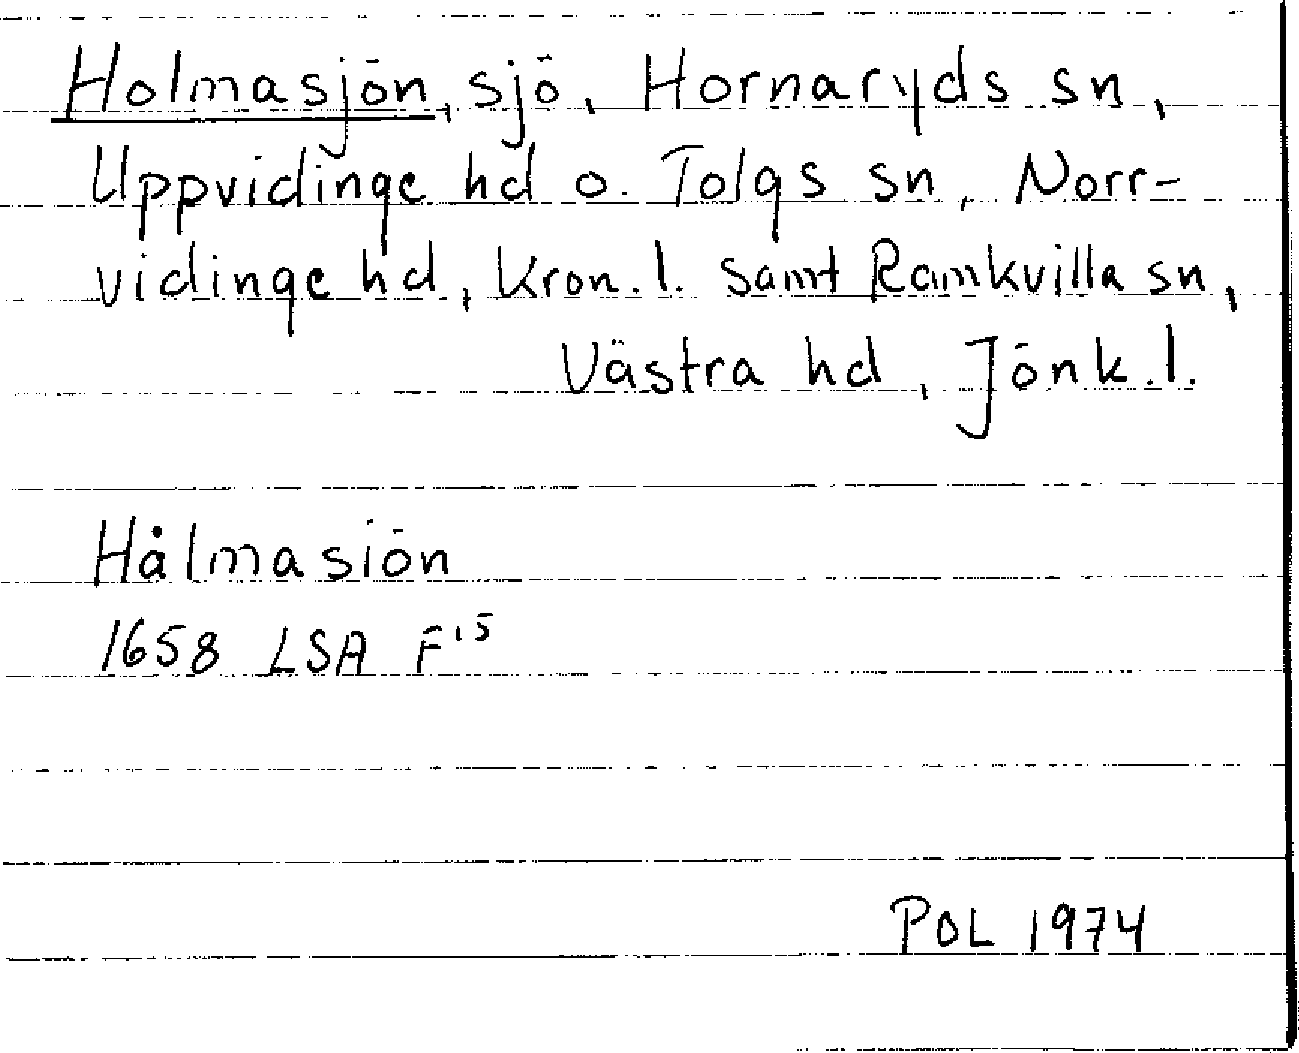 Holmasjön, sjö, Hornaryds sn,
Uppvidinge hd o. Tolgs sn, Norr-
vidinge hd, Kron.l. samt Ramkvilla sn,
Västra hd, Jönk.l.
Hålmasiön
1658 LSA F¹⁵
POL 1974